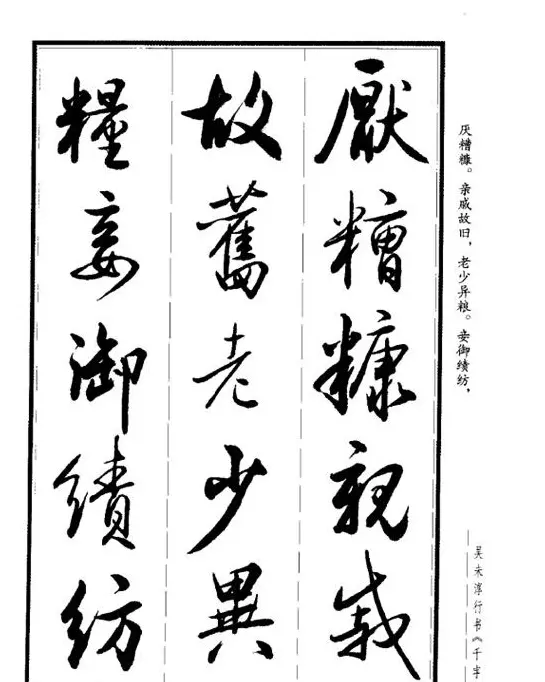 厭糟糠親戚
故舊老少異
糧妾御績紡
厌糟糠。亲戚故旧，老少异粮。妾御绩纺，
吴未淳行书《千字